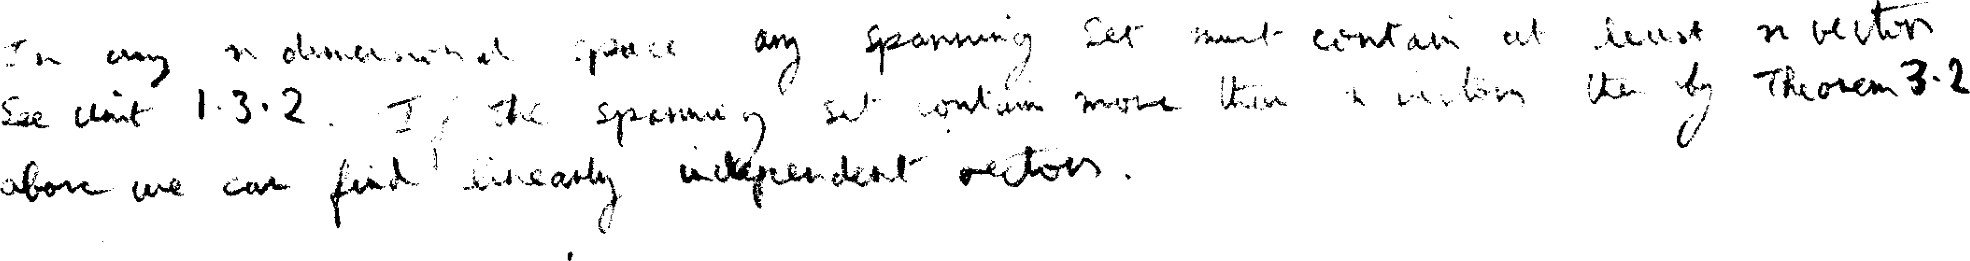 In any n dimensional space any spanning set must contain at least n vectors
See Unit 1.3.2. If the spanning set contain more than n vectors then by Theorem 3.2
above we can find linearly independent vectors.